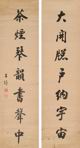 大開牖戶納宇宙
茶煙琴韻書聲中